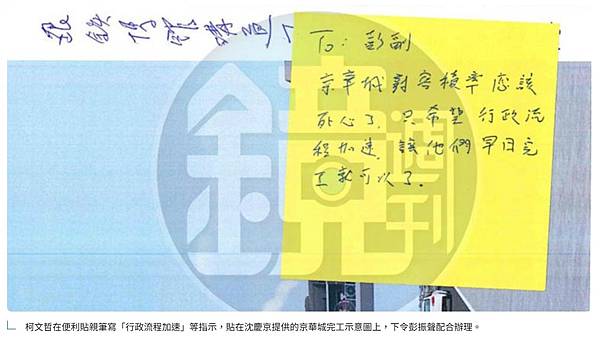 To: 彭副
京華城對容積率應該
死心了. 只希望行政流
程加速. 讓他們早日完
工就可以了.
鏡週刊
柯文哲在便利貼親筆寫「行政流程加速」等指示，貼在沈慶京提供的京華城完工示意圖上，下令彭振聲配合辦理。